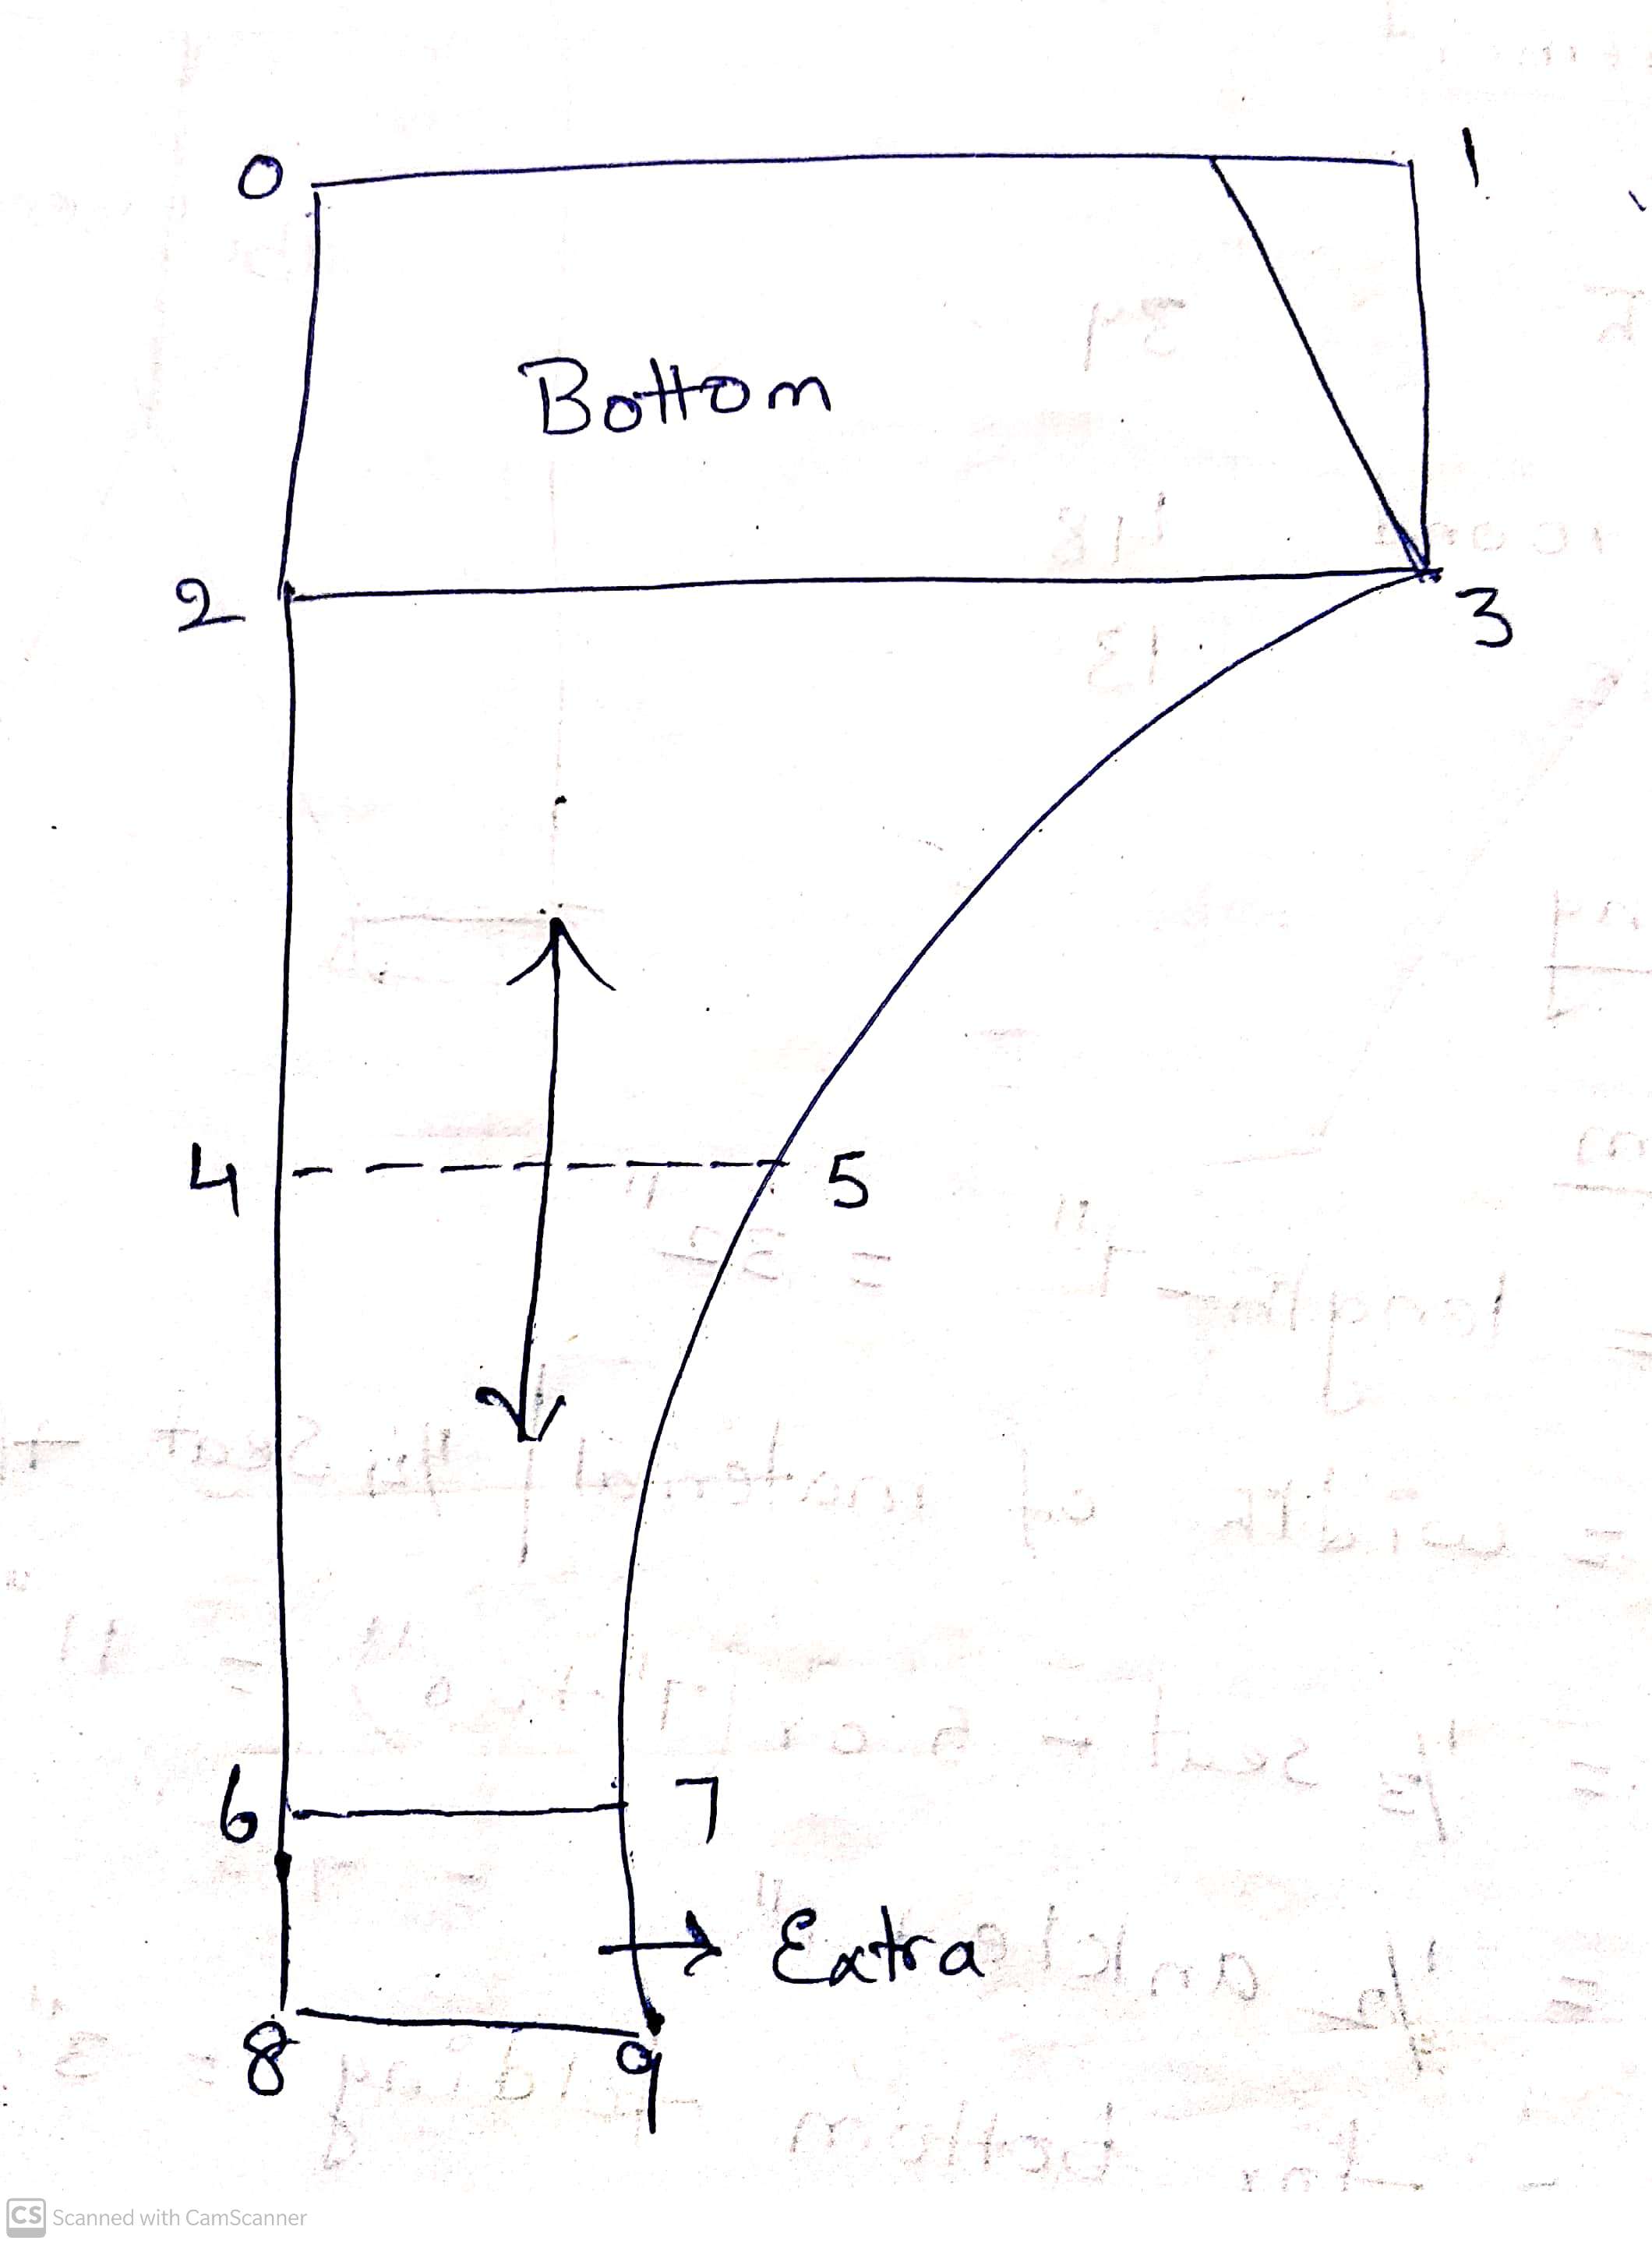 0 1
Bottom
2 3
4 5
6 7
Extra
8 9
CS Scanned with CamScanner